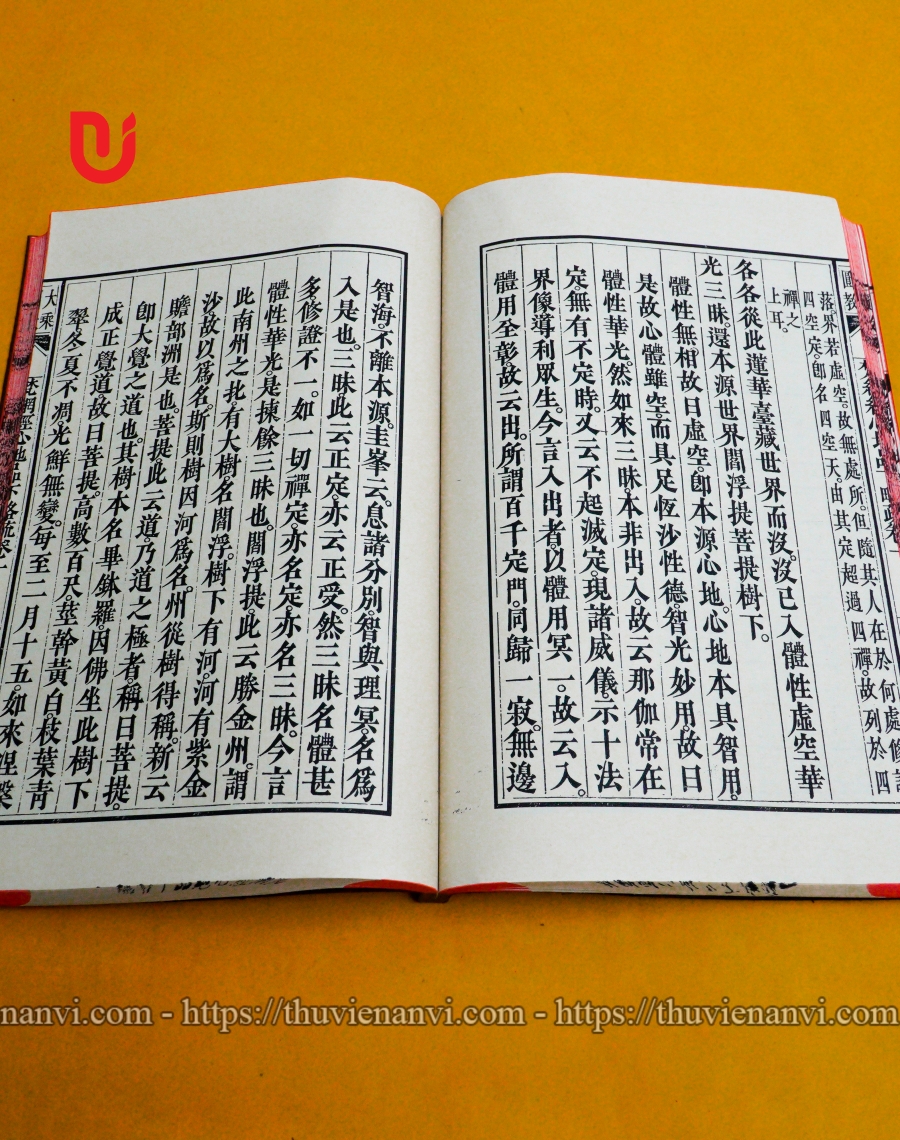 落界若虛空故無處所。但隨其人在於何處修
四空定。卽名四空天。由其定超過四禪。故列於四
禪之
上耳。
各各從此蓮華臺藏世界而沒。沒已入體性虛空華
光三昧。還本源世界閻浮提菩提樹下。
體性無相。故曰虛空。卽本源心地。心地本具智用。
是故心體雖空。而具足恆沙性德。智光妙用。故曰
體性華光。然如來三昧。本非出入。故云那伽常在
定。無有不定時。又云不起滅定。現諸威儀。示十法
界像。導利眾生。今言入出者。以體用冥一。故云入。
體用全彰。故云出。所謂百千定門。同歸一寂。無邊
智海。不離本源。圭峯云。息諸分別。智與理冥。名爲
入是也。三昧。此云正定。亦云正受。然三昧名體甚
多。修證不一。如一切禪定。亦名定。亦名三昧。今言
體性華光。是揀餘三昧也。閻浮提。此云勝金州。謂
此南州之北。有大樹。名閻浮。樹下有河。河有紫金
沙。故以爲名。斯則樹因河爲名。州從樹得稱。新云
贍部洲是也。菩提。此云道。乃道之極者。稱曰菩提。
卽大覺之道也。其樹本名畢鉢羅。因佛坐此樹下
成正覺道。故曰菩提。高數百尺。莖幹黃白。枝葉青
翠。冬夏不凋。光鮮無變。每至二月十五。如來涅槃
大乘
https://thuvienanvi.com - https://thuvienanvi.com